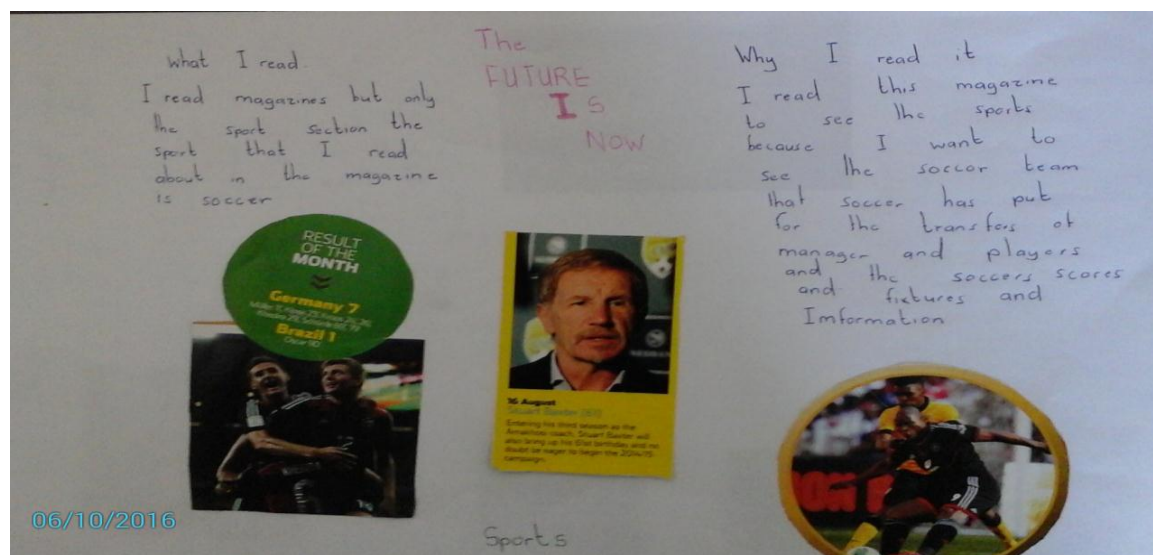 what I read.
I read magazines but only
the sport section the
sport that I read
about in the magazine
is soccer
The
FUTURE
IS
NOW
Why I read it
I read this magazine
to see the sports
because I want to
see the soccor team
that soccer has put
for the transfers of
manager and players
and the soccers scores
and fixtures and
Imformation
RESULT
OF THE
MONTH
Germany 7
Brazil 1
Oscar 90
16 August
Stuart Baxter (61)
Entering his third season as the
Amakhosi coach, Stuart Baxter will
also bring up his 61st birthday and no
doubt be eager to begin the 2014/15
campaign.
Sports
06/10/2016